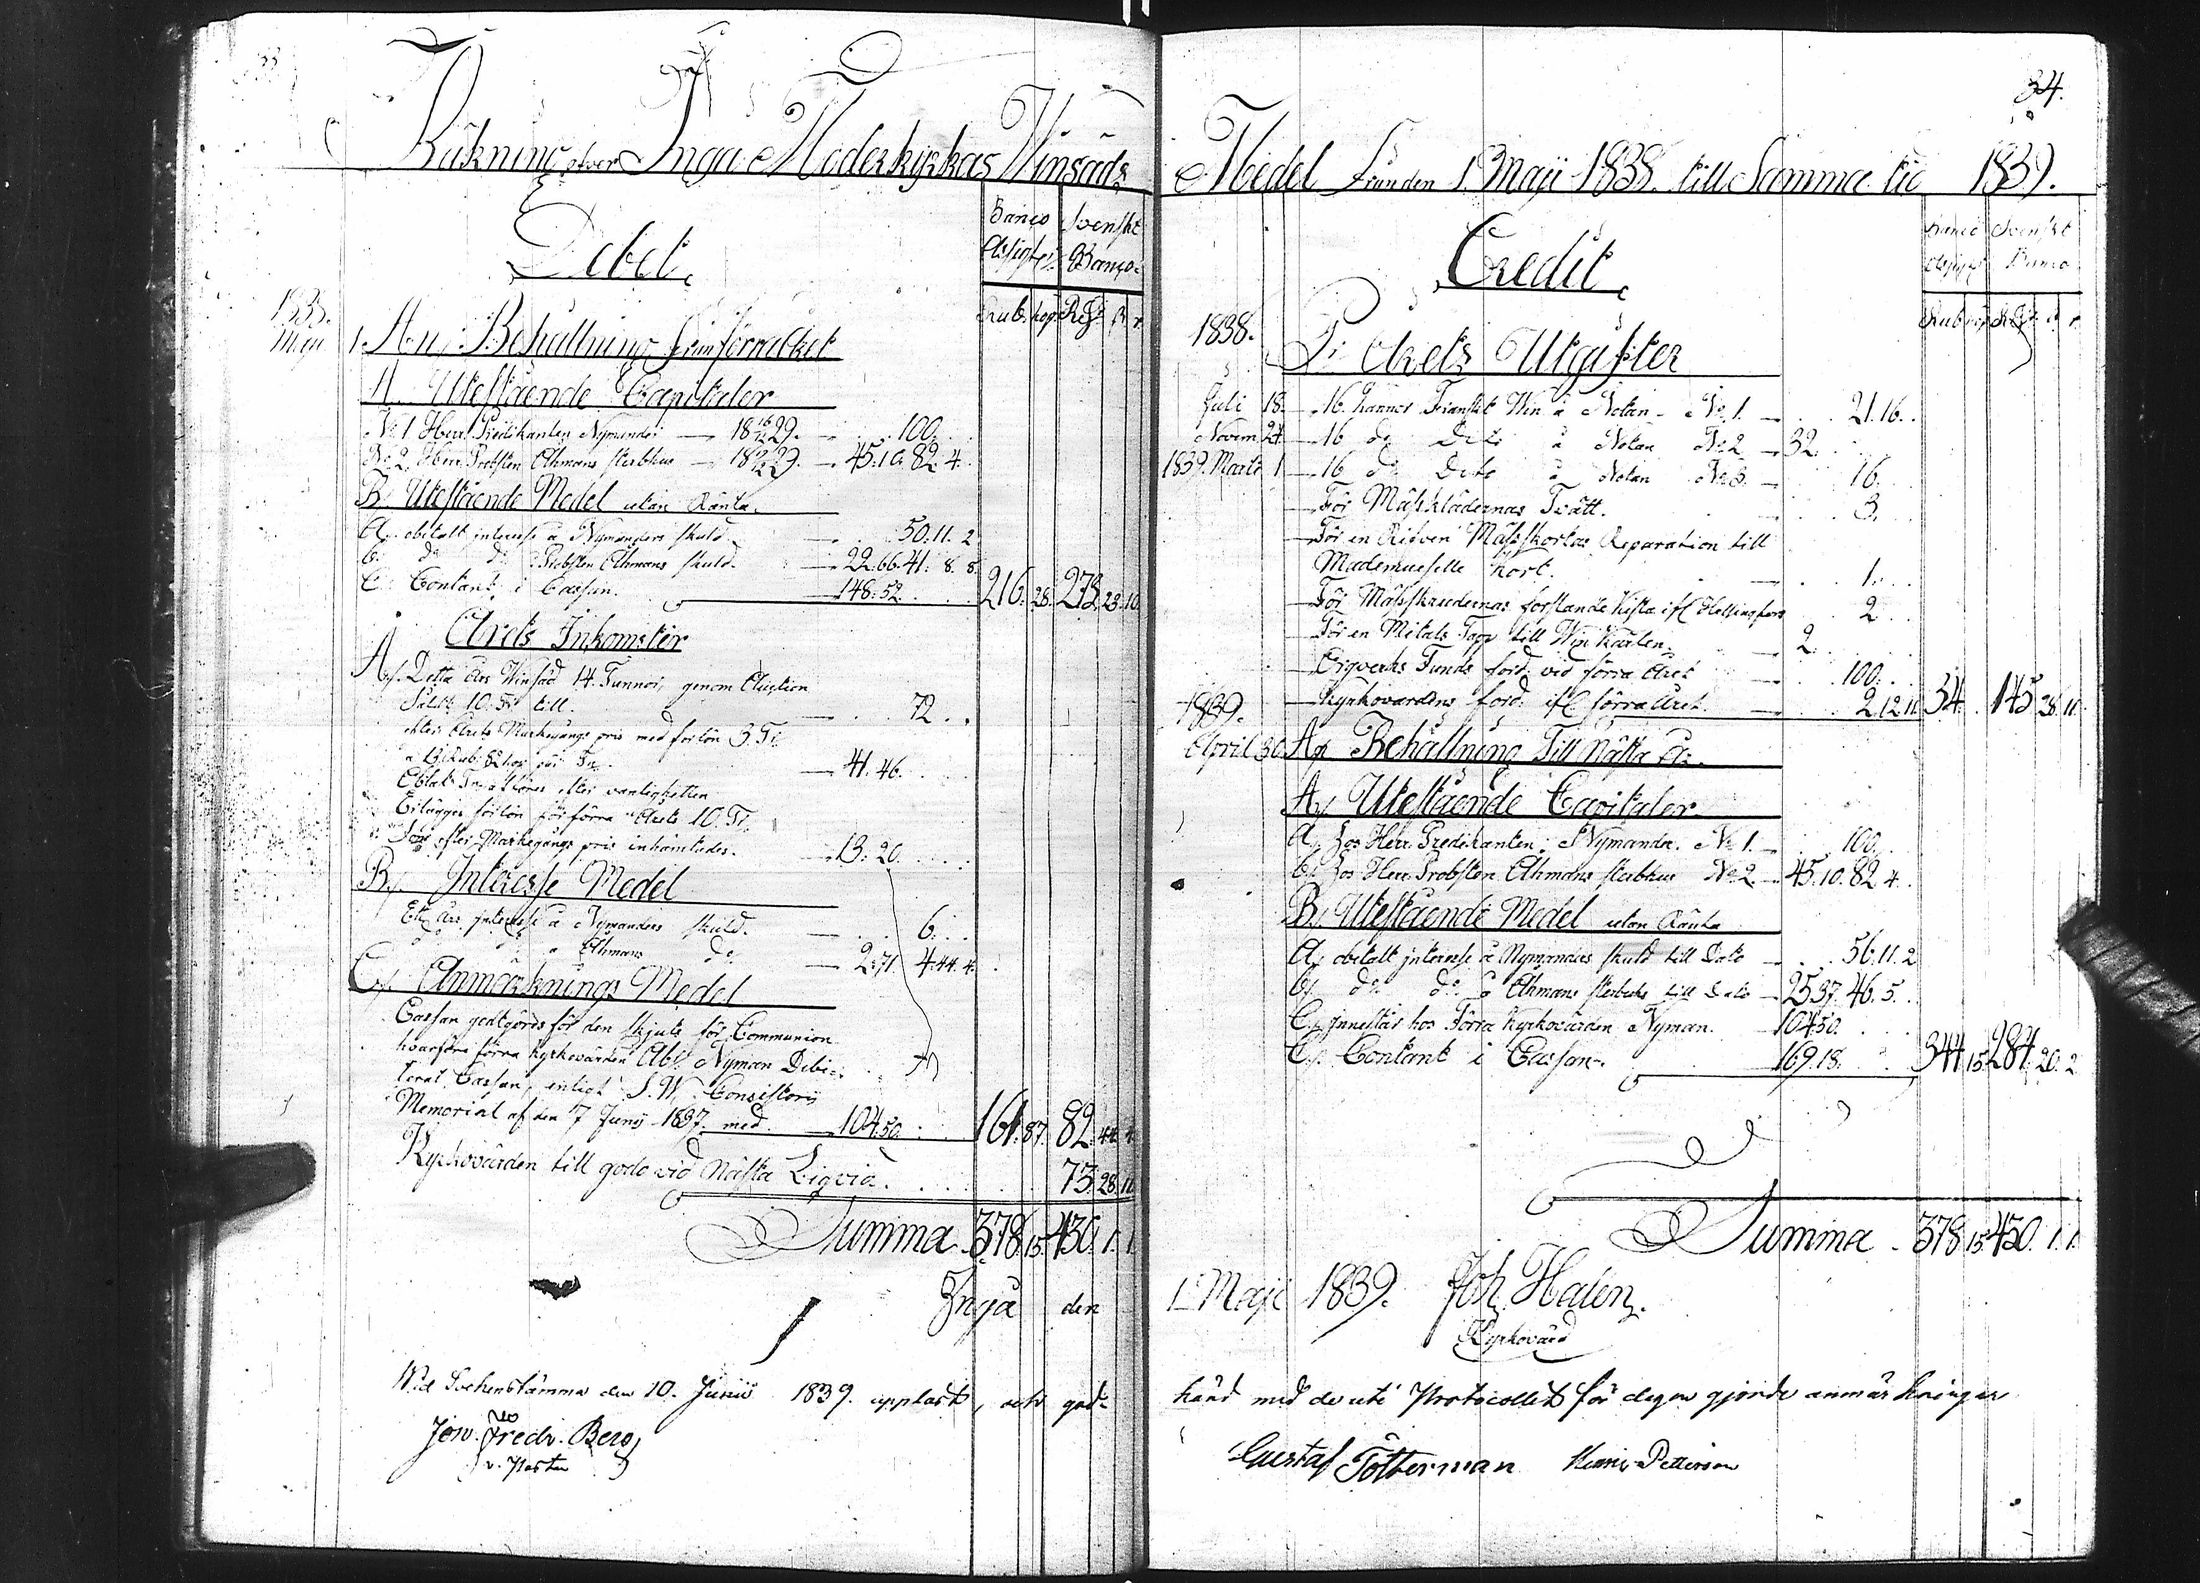 33
Räkning öfver Inga Moderkyrkas Winsäds
Debet
Banco Assigter. Svenskt Banco.
Rub. kop. Rdr ß r.
1838. Maji 1. An, Behållning från förra Året
A. Utestående Capitaler
No 1 Herr Predikanten Nymander — 18 16/12 29. — 100.
No 2. Herr Probsten Ethmans sterbhus — 18 /12 29. — 45.10. 82. 4.
B. Utestående Medel utan Ränta.
A. obetalt interesse å Nymanders skuld. — 50. 11. 2
b. do do Probsten Ethmans skuld. — 22.66. 41. 8. 8.
C. Contant i Cassan. — 148. 52. 216. 28. 273. 23. 10.
Årets Inkomster
A. Detta Års Winsäd 14. Tunnor, genom Auction
Såldt 10. Tr till. — 72. .
efter Årets Markegångs pris med forlön 3. Tr.
— 41. 46.
efter vanligheten
förlön för förra Årets 10. Tr.
efter Markegångs pris inhämtades. — 13. 20.
B. Interesse Medel
Ett Års interesse å Nymanders skuld. — 6.
å Ethmans do — 2. 71. 4. 44. 4.
C. Anmärknings Medel
Cassan godtgöres för den skjuts för Communion
hvarföre förra Kyrkovärden Abr. Nyman Debi-
terat Cassan, enligt S. W. Consistorij
Memorial af den 7 Junij 1837. med. — 104. 50. 161. 87. 82. 44. 4.
Kyrkovärden till godo vid Nästa Liqvid. 73. 28. 11.
Summa 378. 15. 430. 1. 1.
Ingå den
Wid Sockenstämma den 10. Junii 1839. uppläst, och god-
Jon. Fredr. Berg
v. Pastor
34.
Medel Från den 1 Maji 1838. till Samma tid 1839.
Credit
Banco Assigt Svenskt Banco
Rub kop Rdr ß r.
1838. Pr Årets Utgifter
Juli 18. — 16. kannor Franskt Win å Notan - No 1. — 21. 16.
Novem. 24 — 16 do Dito å Notan No 2 — 32.
1839. Marti 1 — 16 do Dito å Notan No 3. — 16.
— För Mässklädernas Tvätt. 3.
— För en Rifven Mässkortas Reparation till
Mademoiselle Kort. — 1.
— För Mässkrudernas forslande hista ifr Helsingfors 2
— För en Metals Tapp till Win Kärlen. — 2.
— Orgverks Funds ford. vid förra Året — 100.
— Kyrkovardens ford. ifr förra Året. — 2. 12. 11. 34. 145. 28. 11.
1839. April 30. Af Behållning Till Nästa År.
A. Utestående Capitaler.
A. Hos Herr Predikanten Nymander. No 1. — 100.
b. Hos Herr Probsten Ethmans sterbhus No 2. — 45. 10. 82. 4.
B. Utestående Medel utan Ränta
A. obetalt interesse å Nymanders skuld till Dato — 56. 11. 2
b. do do å Ethmans sterbhs till Dato — 25. 37. 46. 5.
C. innestår hos Förra Kyrkovärden Nyman. 104. 50.
C. Contant i Cassan. 169. 18. 344. 15. 284. 20. 2
Summa. 378. 15. 430. 1. 1.
1 Maji 1839. Joh. Halén.
Kyrkovärd
känd med de uti Protocollet för dagen gjorde anmärkningar
Gustaf Tötterman Petterson